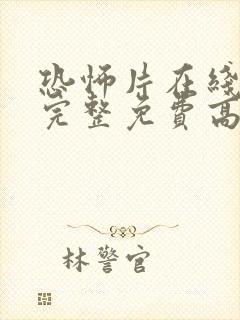 恐怖片在线
完整免费高
林警官